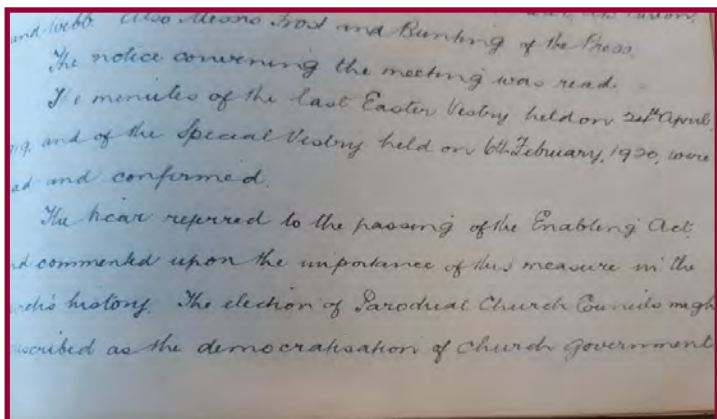 and Webb. Also Messrs Frost and Bunting of the Press.
The notice convening the meeting was read.
The minutes of the last Easter Vestry held on 24th April,
and of the Special Vestry held on 6th February, 1920, were
ad and confirmed.
The Vicar referred to the passing of the Enabling Act
d commented upon the importance of this measure in the
urch's history. The election of Parochial Church Councils migh
scribed as the democratisation of Church Government